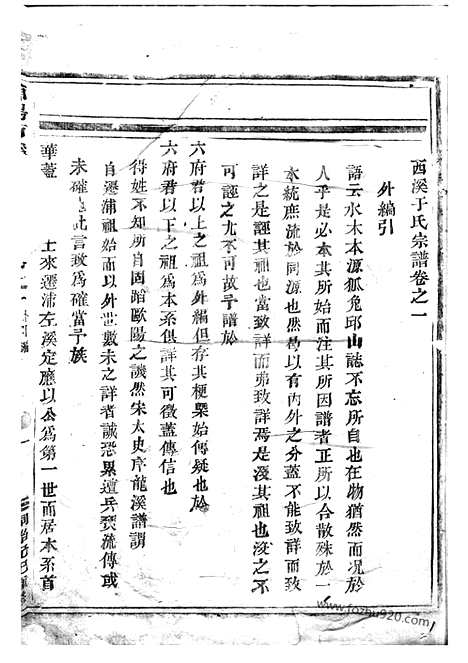 西溪于氏宗譜卷之一
外編引
語云水木本源狐兔邱山誌不忘所自也在物猶然而况於
人乎是必本其所始而注其所因譜者正所以合散殊於一
本統庶流於同源也然曷以有内外之分蓋不能致詳而致
詳之是誣其祖也當致詳而弗致詳焉是湮其祖也湮之不
可誣之尤不可故于譜於
六府君以上之祖爲外編但存其梗槩始傳疑也於
六府君以下之祖爲本系俱詳其可徵蓋傳信也
得姓不知所自固蹈歐陽之譏然宋太史序龍溪譜謂
自遷浦祖始而以外世數未之詳者誠恐累遭兵燹流傳或
未確是此言最爲確當于族
華蓋 士來遷浦左溪定廳以公爲第一世而居本系首
www.fozhu920.com